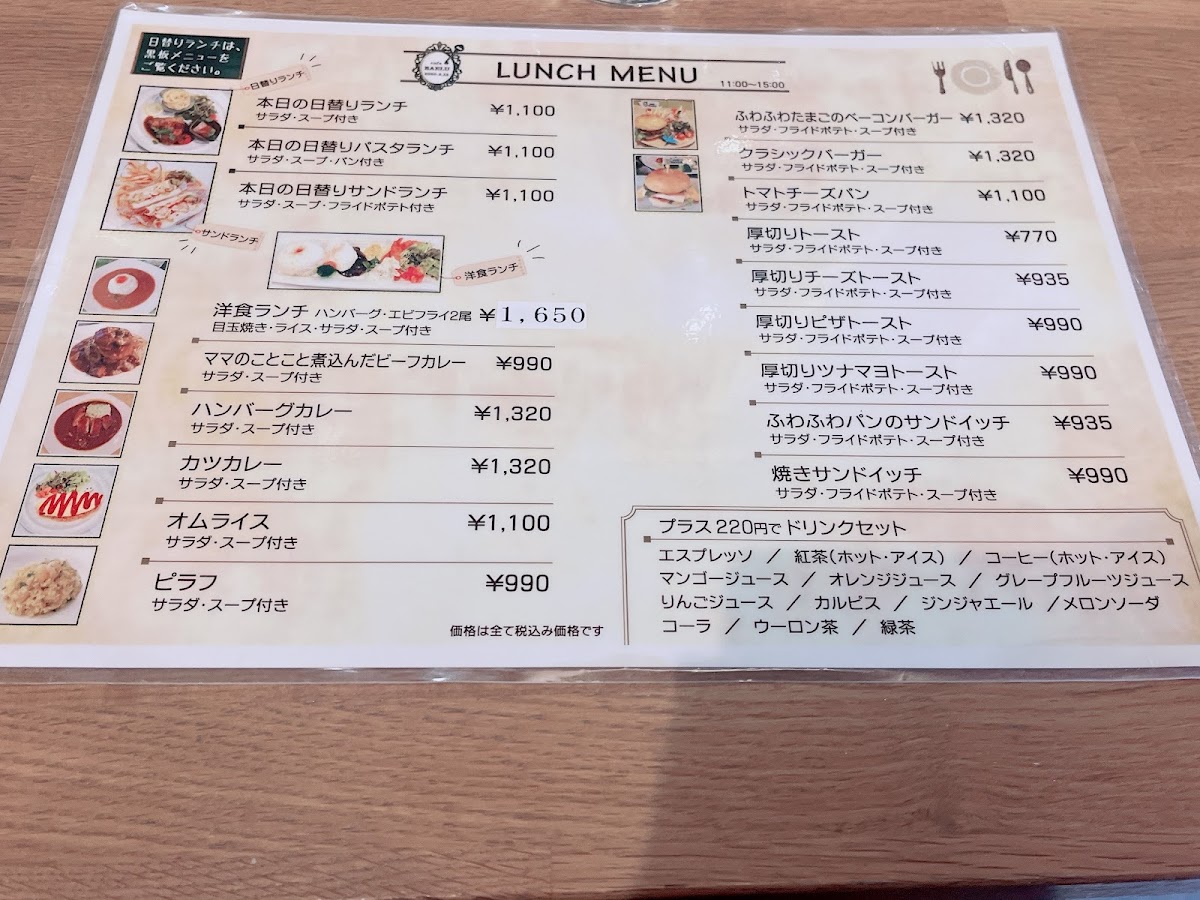 日替りランチは、
黒板メニューを
ご覧ください。
日替りランチ
LUNCH MENU
11:00~15:00
本日の日替りランチ ¥1,100
サラダ・スープ付き
本日の日替りパスタランチ ¥1,100
サラダ・スープ・パン付き
本日の日替りサンドランチ ¥1,100
サラダ・スープ・フライドポテト付き
サンドランチ
洋食ランチ
洋食ランチ ハンバーグ・エビフライ2尾 ¥1,650
目玉焼き・ライス・サラダ・スープ付き
ママのことこと煮込んだビーフカレー ¥990
サラダ・スープ付き
ハンバーグカレー ¥1,320
サラダ・スープ付き
カツカレー ¥1,320
サラダ・スープ付き
オムライス ¥1,100
サラダ・スープ付き
ピラフ ¥990
サラダ・スープ付き
価格は全て税込み価格です
ふわふわたまごのベーコンバーガー ¥1,320
サラダ・フライドポテト・スープ付き
クラシックバーガー ¥1,320
サラダ・フライドポテト・スープ付き
トマトチーズパン ¥1,100
サラダ・フライドポテト・スープ付き
厚切りトースト ¥770
サラダ・フライドポテト・スープ付き
厚切りチーズトースト ¥935
サラダ・フライドポテト・スープ付き
厚切りピザトースト ¥990
サラダ・フライドポテト・スープ付き
厚切りツナマヨトースト ¥990
サラダ・フライドポテト・スープ付き
ふわふわパンのサンドイッチ ¥935
サラダ・フライドポテト・スープ付き
焼きサンドイッチ ¥990
サラダ・フライドポテト・スープ付き
プラス220円でドリンクセット
エスプレッソ / 紅茶(ホット・アイス) / コーヒー(ホット・アイス)
マンゴージュース / オレンジジュース / グレープフルーツジュース
りんごジュース / カルピス / ジンジャエール /メロンソーダ
コーラ / ウーロン茶 / 緑茶